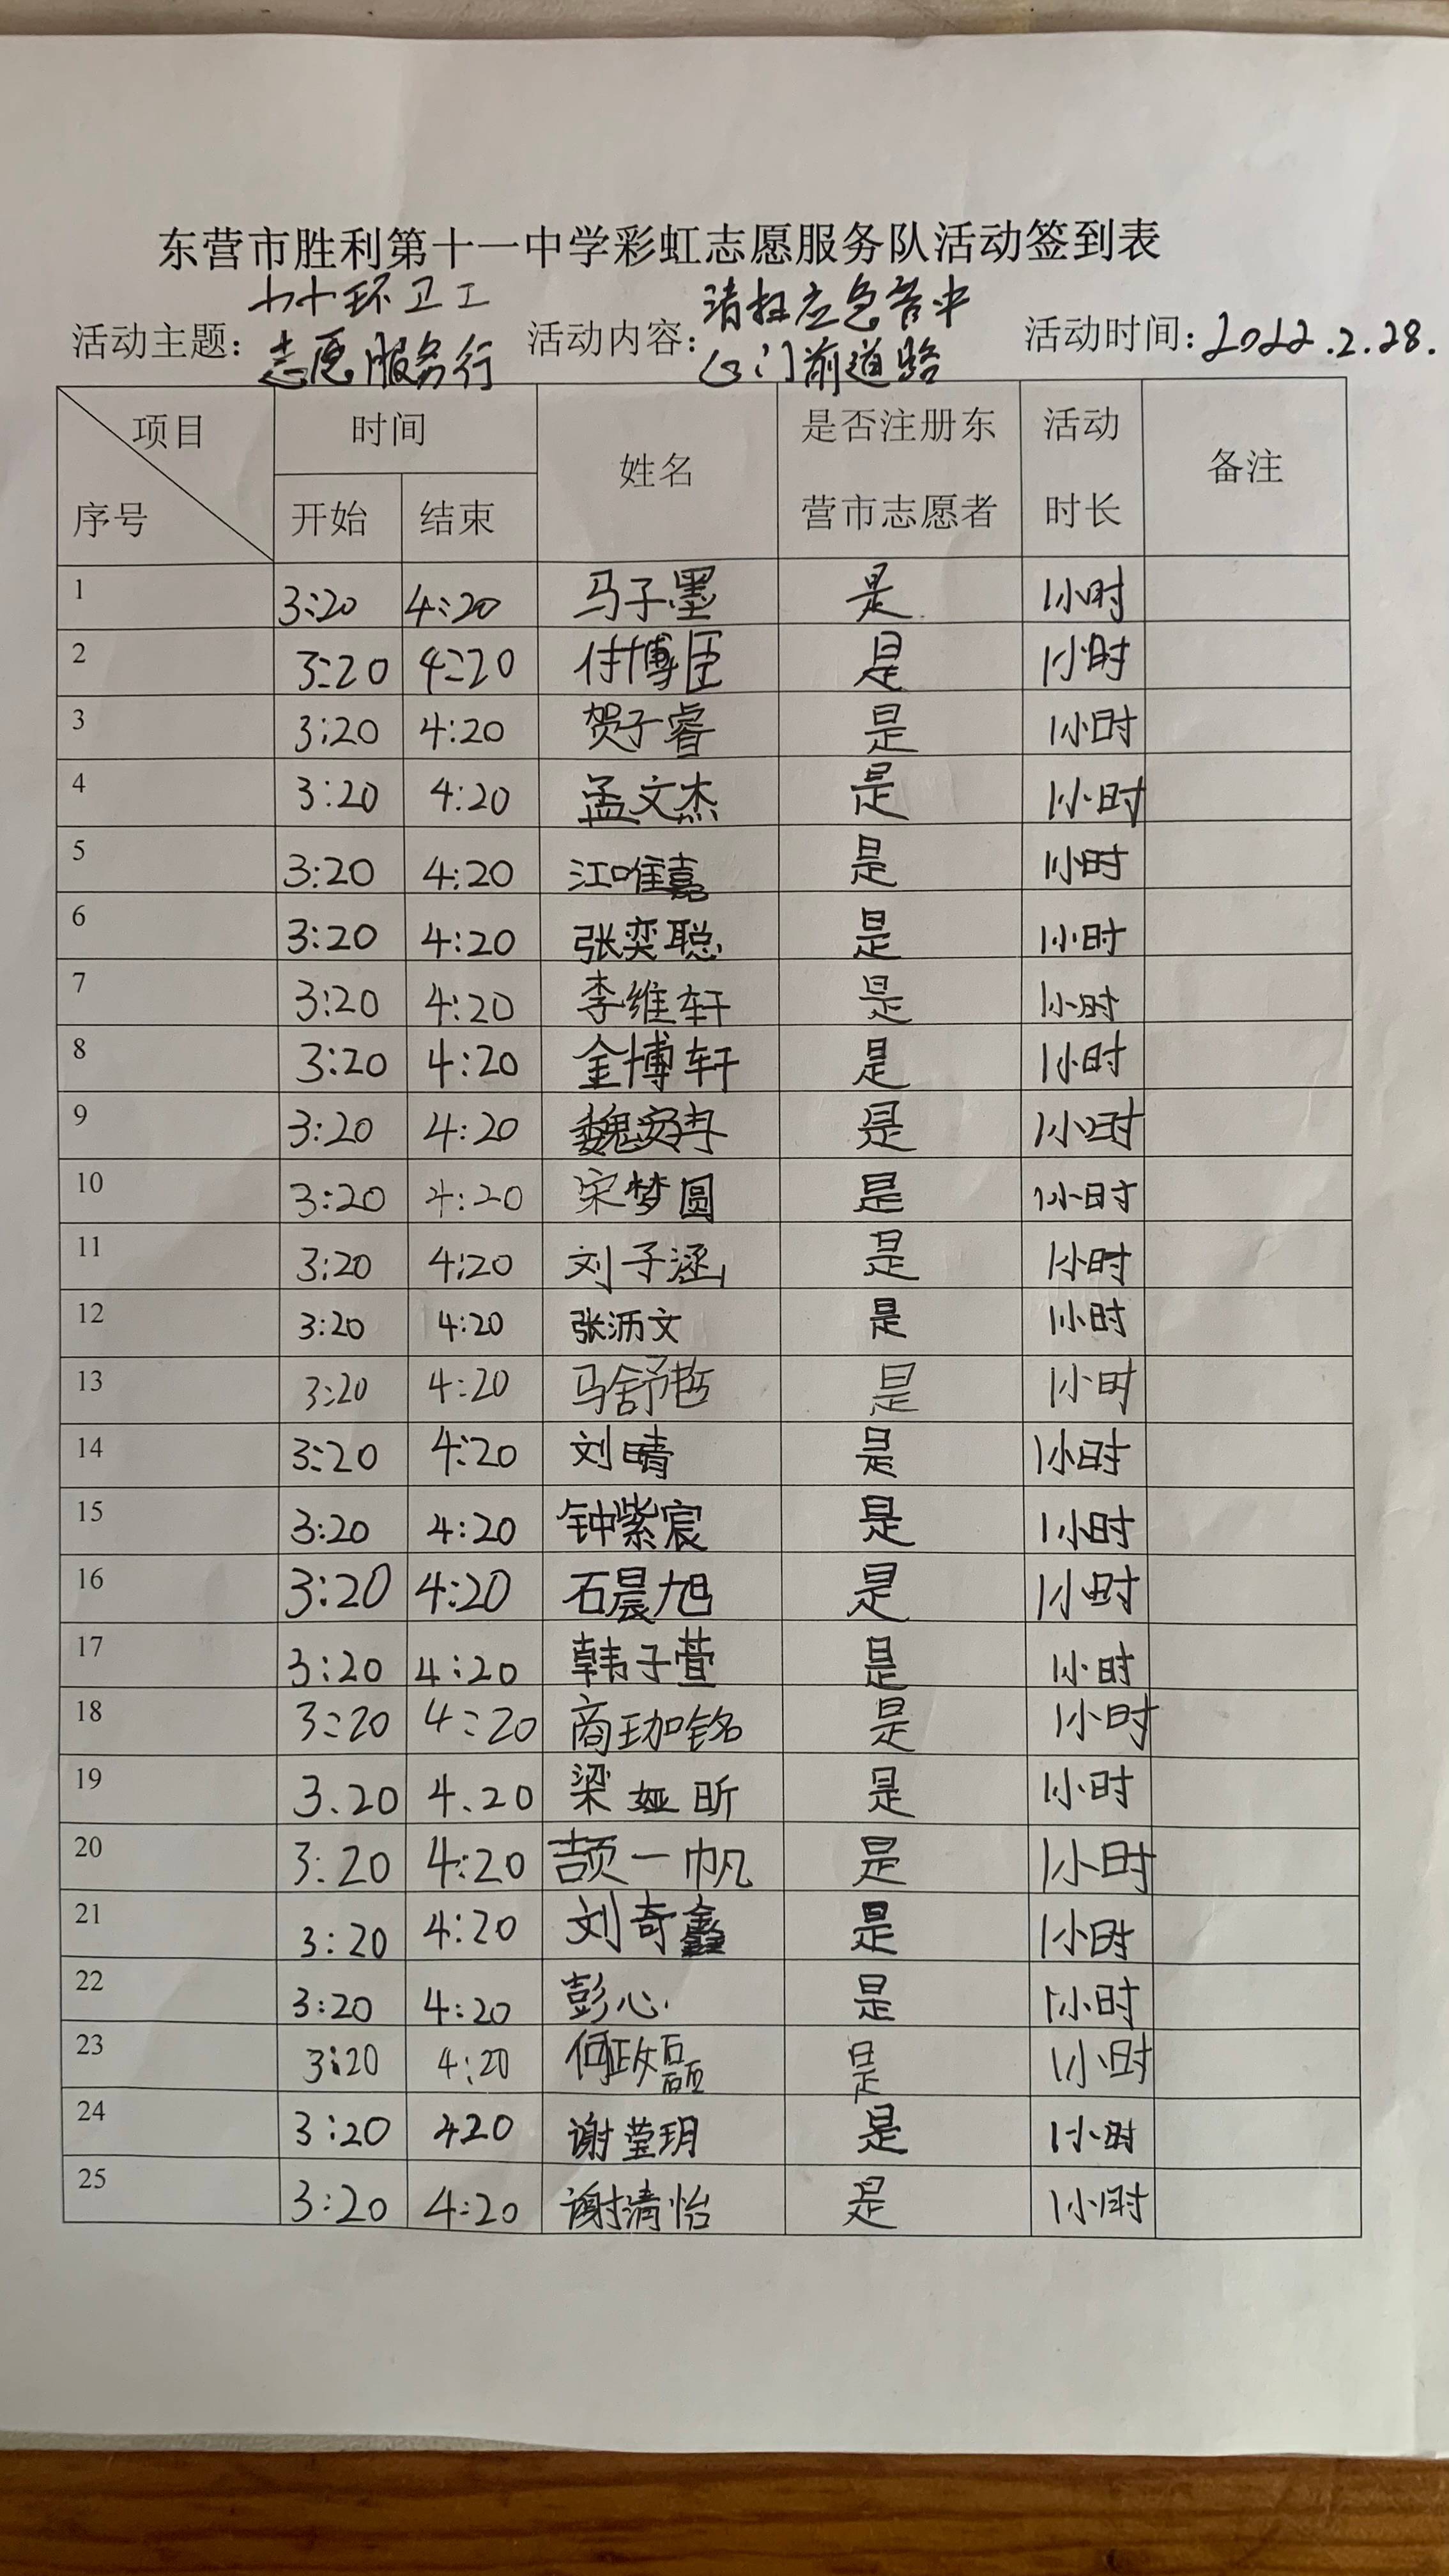 东营市胜利第十一中学彩虹志愿服务队活动签到表
活动主题：小小环卫工 志愿服务行 活动内容：清扫应急 中心门前道路 活动时间：2022.2.28.
项目 时间 姓名 是否注册东营市志愿者 活动时长 备注
序号 开始 结束
1 3:20 4:20 马子墨 是 1小时
2 3:20 4:20 付博臣 是 1小时
3 3:20 4:20 贺子睿 是 1小时
4 3:20 4:20 孟文杰 是 1小时
5 3:20 4:20 江唯嘉 是 1小时
6 3:20 4:20 张奕聪 是 1小时
7 3:20 4:20 李维轩 是 1小时
8 3:20 4:20 金博轩 是 1小时
9 3:20 4:20 魏安冉 是 1小时
10 3:20 4:20 宋梦圆 是 1小时
11 3:20 4:20 刘子涵 是 1小时
12 3:20 4:20 张沥文 是 1小时
13 3:20 4:20 马舒哲 是 1小时
14 3:20 4:20 刘晴 是 1小时
15 3:20 4:20 钟紫宸 是 1小时
16 3:20 4:20 石晨旭 是 1小时
17 3:20 4:20 韩子萱 是 1小时
18 3:20 4:20 商珈铭 是 1小时
19 3.20 4.20 梁娅昕 是 1小时
20 3:20 4:20 颉一帆 是 1小时
21 3:20 4:20 刘奇鑫 是 1小时
22 3:20 4:20 彭心 是 1小时
23 3:20 4:20 何政磊 是 1小时
24 3:20 420 谢莹玥 是 1小时
25 3:20 4:20 谢清怡 是 1小时